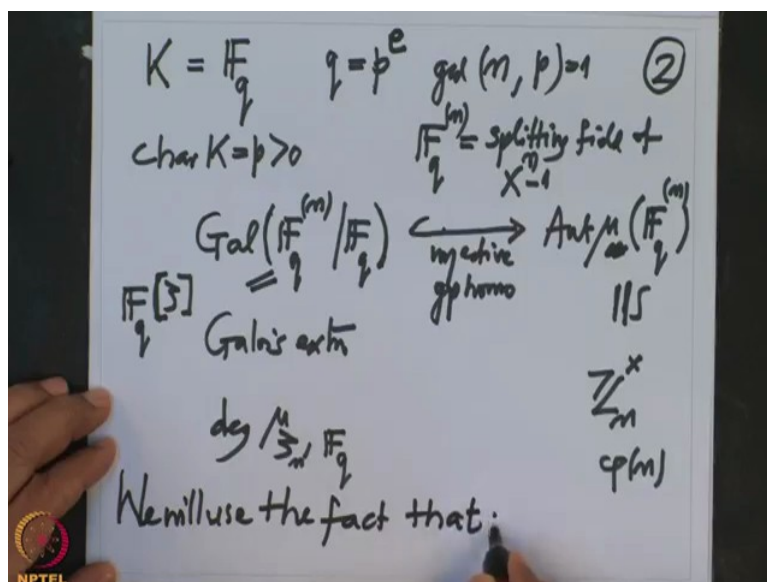 K = 𝔽_q   q = p^e   gcd(n, p)=1   ②
char K = p>0   𝔽_q^(n) = splitting field of
X^n-1
Gal(𝔽_q^(n) / 𝔽_q) ↪ Aut μ_n(𝔽_q^(n))
injective
gp homo
𝔽_q[ζ]   Galois extn   ||S
ℤ_n^×
deg μ_ζ_n, 𝔽_q   φ(n)
We will use the fact that:
NPTEL